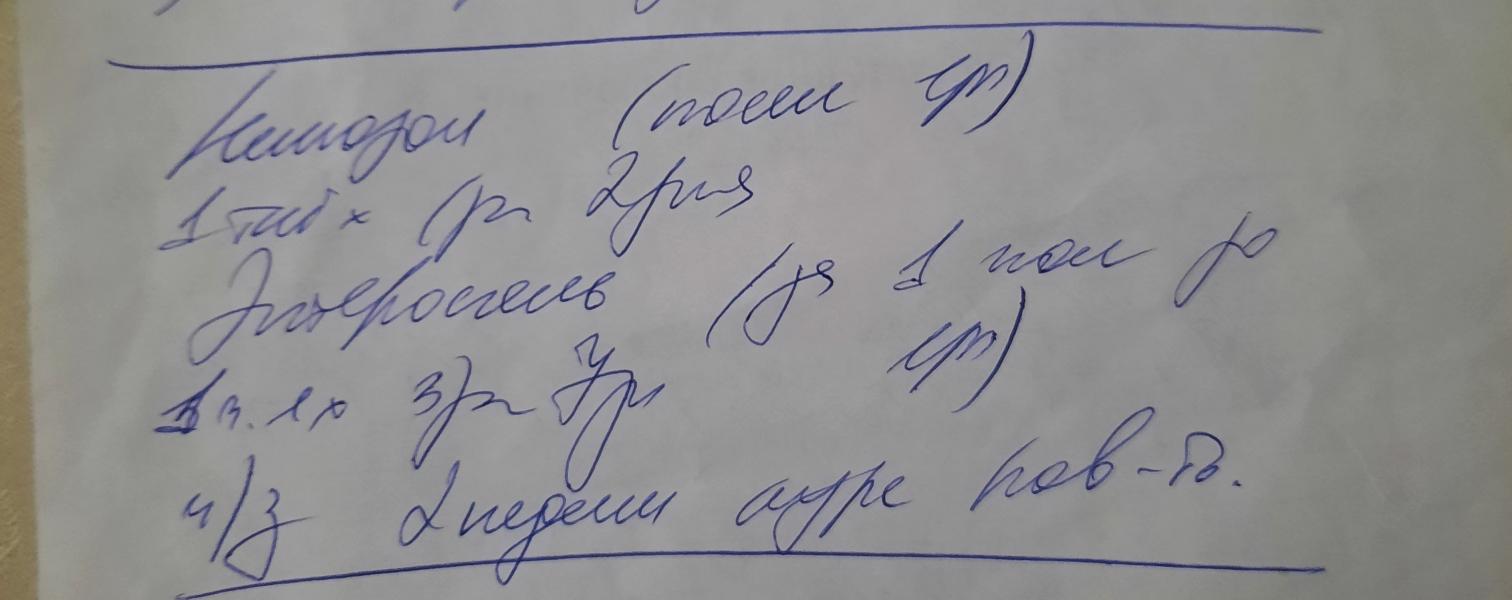 Немозол (после еды)
1 таб х 1 р 2 дня
Энтеросгель (за 1 час до
1 ч. л х 3 р 7 дн еды)
ч/з 2 недели курс пов-ть.